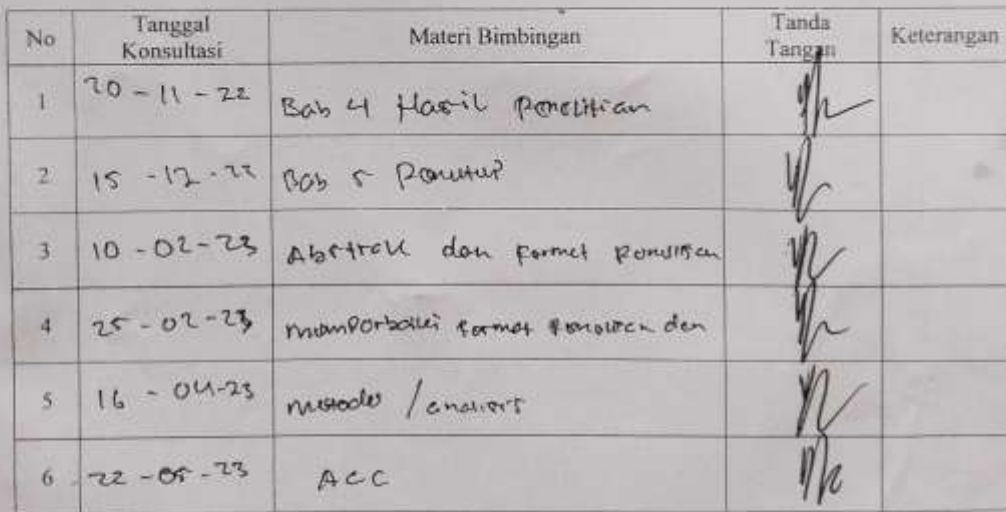 No Tanggal Konsultasi Materi Bimbingan Tanda Tangan Keterangan
1 20 - 11 - 22 Bab 4 Hasil Penelitian
2 15 - 12 - 22 Bab 5 Penutup
3 10 - 02 - 23 Abstrak dan format Penulisan
4 25 - 02 - 23 memperbaiki format penulisan dan
5 16 - 04 - 23 metode / analisis
6 22 - 05 - 23 ACC